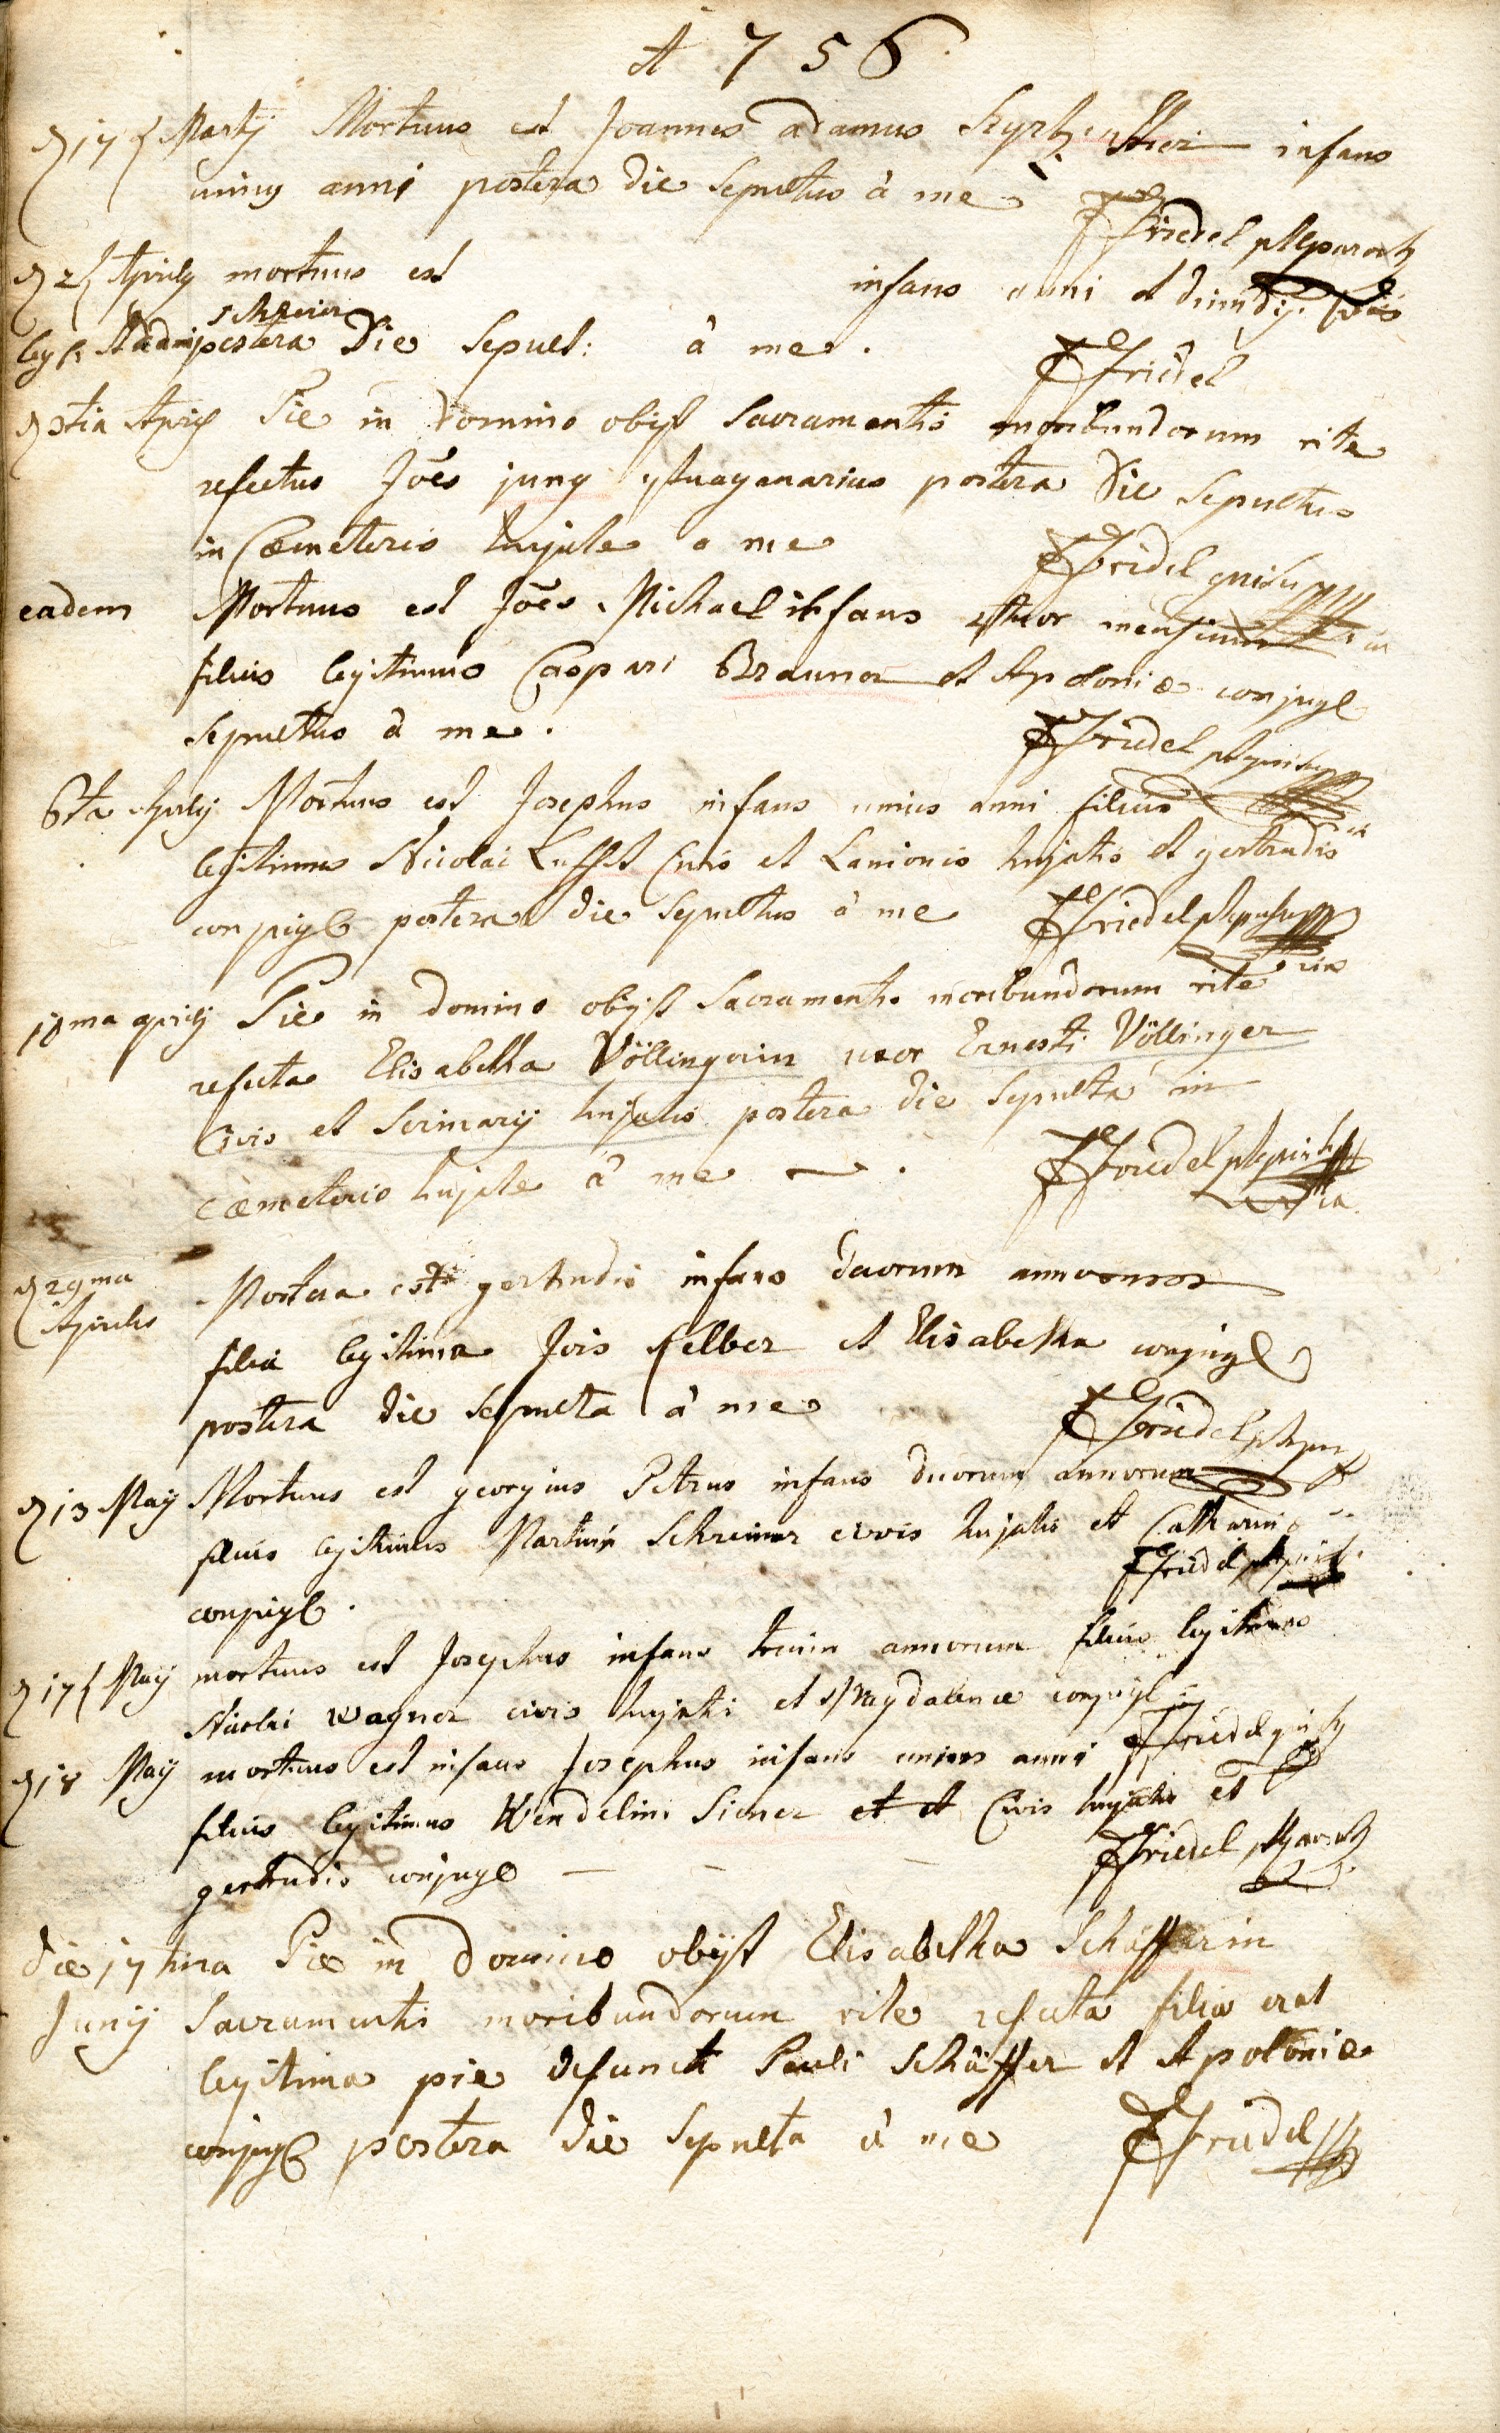 A 756
D 17 Martij Mortuus est Joannes adamus infans
unius anni postera die sepultus à me FFriedel
D 2 Aprilis mortuus est infans anni et dimidij
schreiner
postera Die Sepult: à me. FFriedel
D 3tia Aprilis Pie in Domino obijt Sacramentis moribundorum rite
refectus Joês jung postera Die Sepultus
in Coemeterio hujate a me FFridel
eadem Mortuus est Joês Michael infans 4tuor mensium
filius legitimus Caspari Brauner et Apoloniæ conjugum
sepultus à me. FFriedel
6ta Aprilij Mortuus est Josephus infans unius anni filius
legitimus Nicolai Lufft Civis et Lanionis hujatis et gertrudis
conjugum postera die sepultus à me FFriedel
18ma aprilij Pie in domino obijt Sacramentis moribundorum rite
refecta Elisabetha Völlingerin uxor Ernesti Völlinger
Civis et Scrinarij hujatis postera die sepulta in
coemeterio hujate à me FFriedel
D 29ma
Aprilis
Mortua est gertrudis infans duorum annorum
filia legitima Jois Kelber et Elisabetha conjugum
postera die sepulta à me FFriedel
D 13 Maij Mortuus est georgius Petrus infans duorum annorum
filius legitimus Martini Schreiner civis hujatis et Catharina
conjugum. FFriedel
D 17 Maij mortuus est Josephus infans trium annorum filius legitimus
Nicolai Wagner civis hujatis et Magdalenæ conjugum
D 18 Maij mortuus est infans Josephus infans unius anni FFriedel
filius legitimus Wendelini Siener et et Civis hujatis et
gertrudis conjugum FFriedel
die 17tima Pie in Domino obijt Elisabetha Schäfferin
Junij Sacramentis moribundorum rite refecta filia erat
legitima pie defuncti Pauli Schäffer et Apoloniæ
conjugum postera die sepulta à me FFriedel